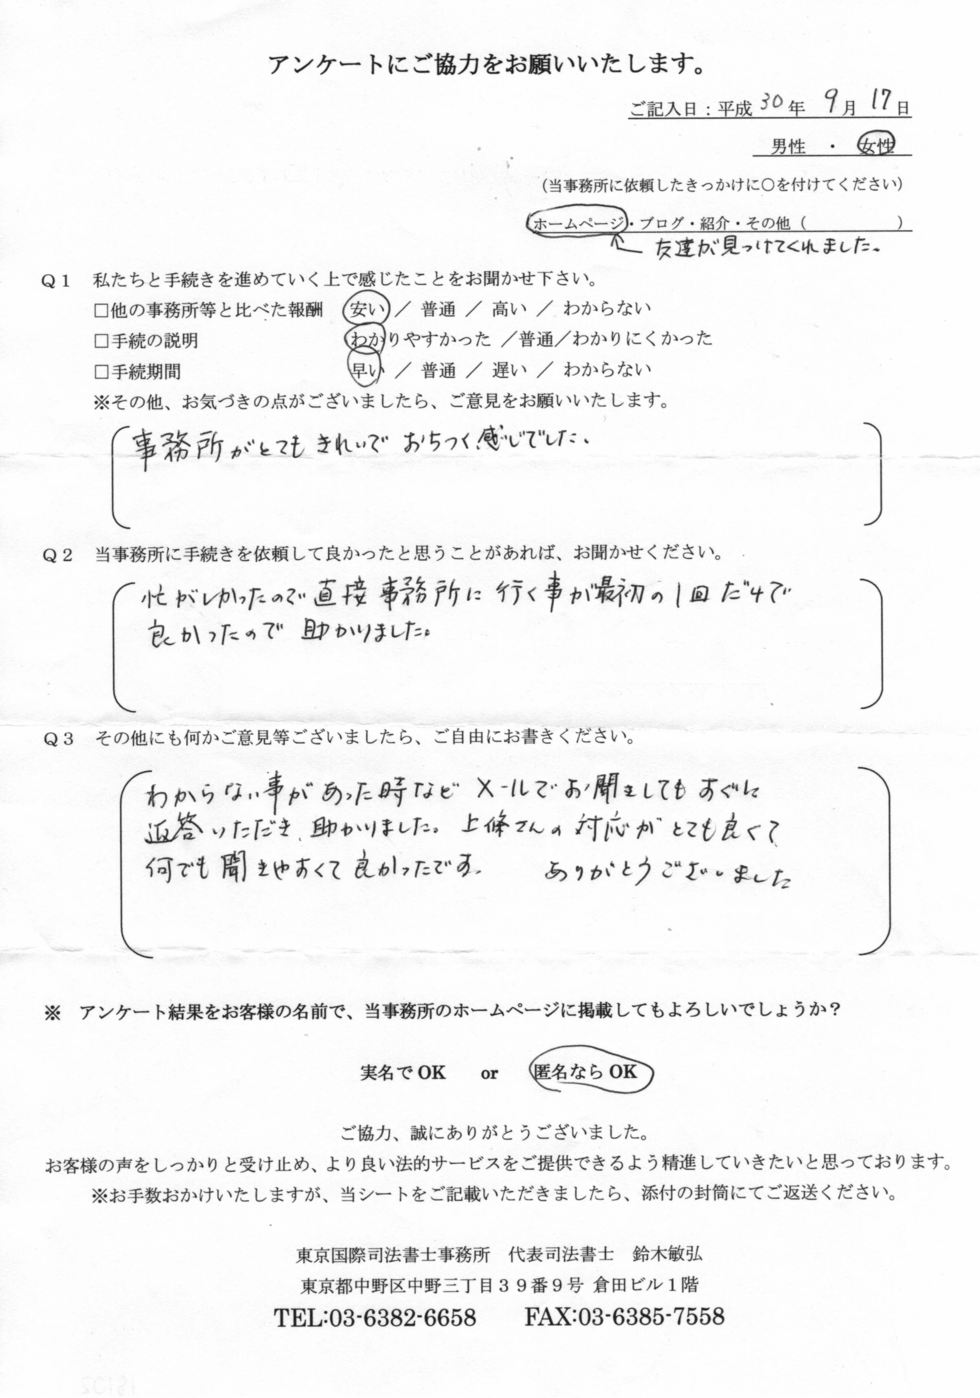 アンケートにご協力をお願いいたします。
ご記入日：平成30年 9月 17日
男性 ・ 女性
（当事務所に依頼したきっかけに○を付けてください）
ホームページ・ブログ・紹介・その他（　　　　　）
友達が見つけてくれました。
Ｑ１ 私たちと手続きを進めていく上で感じたことをお聞かせ下さい。
□他の事務所等と比べた報酬 安い ／ 普通 ／ 高い ／ わからない
□手続の説明 わかりやすかった ／普通／わかりにくかった
□手続期間 早い ／ 普通 ／ 遅い ／ わからない
※その他、お気づきの点がございましたら、ご意見をお願いいたします。
事務所がとてもきれいで おちつく感じでした。
Ｑ２ 当事務所に手続きを依頼して良かったと思うことがあれば、お聞かせください。
忙がしかったので直接事務所に行く事が最初の1回だけで
良かったので 助かりました。
Ｑ３ その他にも何かご意見等ございましたら、ご自由にお書きください。
わからない事があった時など メールでお聞きしてもすぐに
返答いただき、助かりました。上條さんの対応がとても良くて
何でも聞きやすくて良かったです。 ありがとうございました
※ アンケート結果をお客様の名前で、当事務所のホームページに掲載してもよろしいでしょうか？
実名でOK or 匿名ならOK
ご協力、誠にありがとうございました。
お客様の声をしっかりと受け止め、より良い法的サービスをご提供できるよう精進していきたいと思っております。
※お手数おかけいたしますが、当シートをご記載いただきましたら、添付の封筒にてご返送ください。
東京国際司法書士事務所 代表司法書士 鈴木敏弘
東京都中野区中野三丁目３９番９号 倉田ビル１階
TEL:03-6382-6658 FAX:03-6385-7558